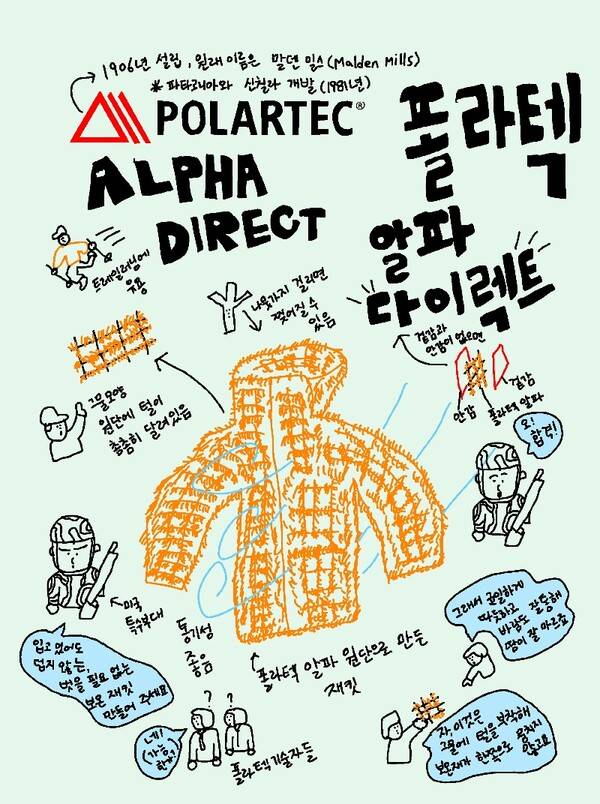 1906년 설립, 원래 이름은 말덴 밀스(Malden Mills)
* 파타고니아와 신칠라 개발(1981년)
POLARTEC®
ALPHA
DIRECT
폴라텍
알파
다이렉트
트레일러닝에
유용
나뭇가지 걸리면
찢어질 수
있음
겉감과
안감이 없으면
겉감
안감
폴라텍 알파
그물모양
원단에 털이
촘촘히 달려있음
오!
합격!
미국
특수부대
입고 있어도
덥지 않는,
벗을 필요 없는
보온 재킷
만들어 주세요
통기성
좋음
폴라텍 알파 원단으로 만든
재킷
네!
(가능
한가?)
? ?
폴라텍 기술자들
그래서 균일하게
따뜻하고
바람도 잘 통해
땀이 잘 마르죠
자, 이것은
그물에 털을 부착해
보온재가 한쪽으로 뭉치지
않고요